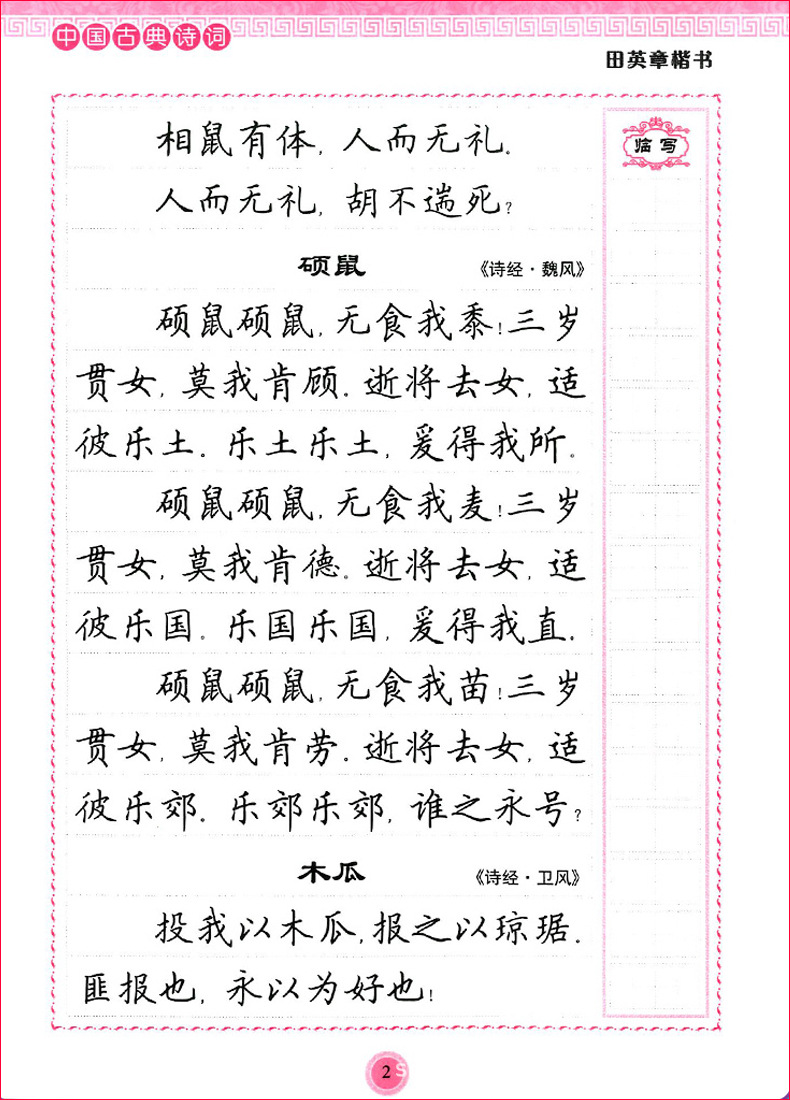 中国古典诗词
田英章楷书
临写
相鼠有体，人而无礼。
人而无礼，胡不遄死？
硕鼠 《诗经·魏风》
硕鼠硕鼠，无食我黍！三岁
贯女，莫我肯顾。逝将去女，适
彼乐土。乐土乐土，爰得我所。
硕鼠硕鼠，无食我麦！三岁
贯女，莫我肯德。逝将去女，适
彼乐国。乐国乐国，爰得我直。
硕鼠硕鼠，无食我苗！三岁
贯女，莫我肯劳。逝将去女，适
彼乐郊。乐郊乐郊，谁之永号？
木瓜 《诗经·卫风》
投我以木瓜，报之以琼琚。
匪报也，永以为好也！
2